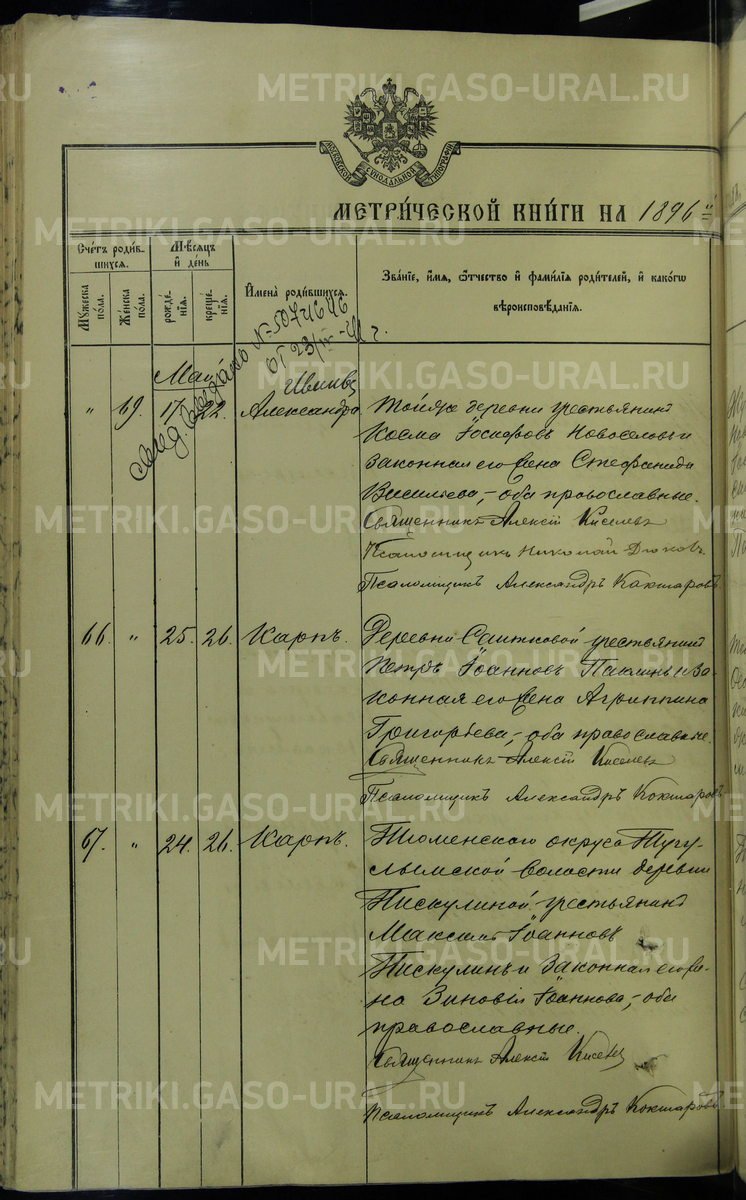 METRIKI.GASO-URAL.RU
МОСКОВСКОЙ СУНОДАЛЬНОЙ ТИПОГРАФІИ
МЕТРИ́ЧЕСКОЙ КНИ́ГИ НА 1896 й
Сче́тъ роди́в-
шихся.
Му́жеска по́ла.
Же́нска по́ла.
Мѣ́сяцъ и де́нь
рожде́-
нія.
креще́-
нія.
Имена̀ роди́вшихся.
Зва́ніе, и́мя, ѻ́тчество и фами́лія роди́телей, и како́гѡ
вѣроисповѣ́данія.
№ 5074646
от 23/IV-41 г.
Май
" 69. 17. 22. Александра
Тойже деревни крестьянинъ
Косма Іосифовъ Новоселовъ и
законная его жена Стефанида
Васильева,- оба православные.
Священникъ Алексій Киселевъ
Псаломщикъ Николай
Псаломщикъ Александръ Кокшаровъ
66. " 25. 26. Карпъ.
Деревни Саитковой крестьянинъ
Петръ Іоанновъ Паклинъ и за-
конная его жена Агриппина
Григорьева,- оба православные.
Священникъ Алексій Киселевъ
Псаломщикъ Александръ Кокшаровъ
67. " 24. 26. Карпъ.
Тюменскаго округа Тугу-
лымской волости деревни
Пискулиной крестьянинъ
Максимъ Іоанновъ
Пискулинъ и законная его же-
на Зиновія Іоаннова,- оба
православные.
Священникъ Алексій Киселевъ
Псаломщикъ Александръ Кокшаровъ